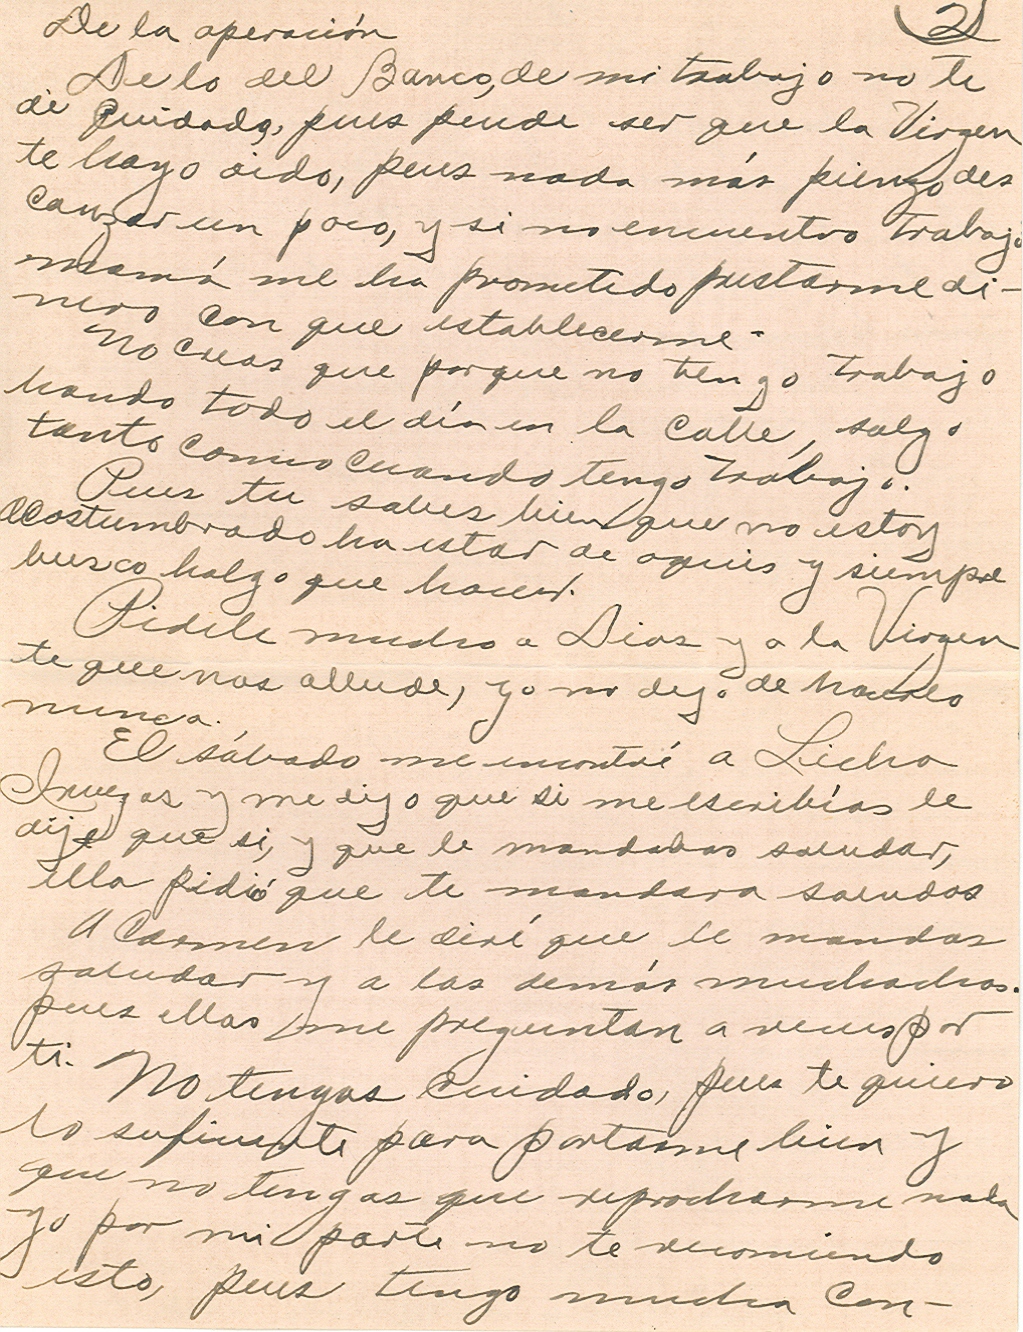 2
De la operación
De lo del Banco, de mi trabajo no te
dé cuidado, pues puede ser que la Virgen
te hayo oido, pues nada más pienzo des
canzar un poco, y si no encuentro trabajo
mamá me ha prometido prestarme di-
nero con que establecerme-
No creas que porque no tengo trabajo
hando todo el día en la calle, salgo
tanto como cuando tengo trabajo.
Pues tu sabes bien que no estoy
acostumbrado ha estar de oquis y siempre
busco halgo que hacer.
Pidele mucho a Dios y a la Virgen
te que nos allude, yo no dejo de hacerlo
nunca.
El sábado me encontré a Licha
y me dijo que si me escribías le
dije que si, y que le mandabas saludar,
ella pidió que te mandara saludos
A Carmen le diré que le mandas
saludar y a las demás muchachas.
pues ellas me preguntan a veces por
ti.
No tengas cuidado, pues te quiero
lo suficiente para portarme bien y
que no tengas que reprocharme nada
yo por mi parte no te recomiendo
esto, pues tengo mucha con-